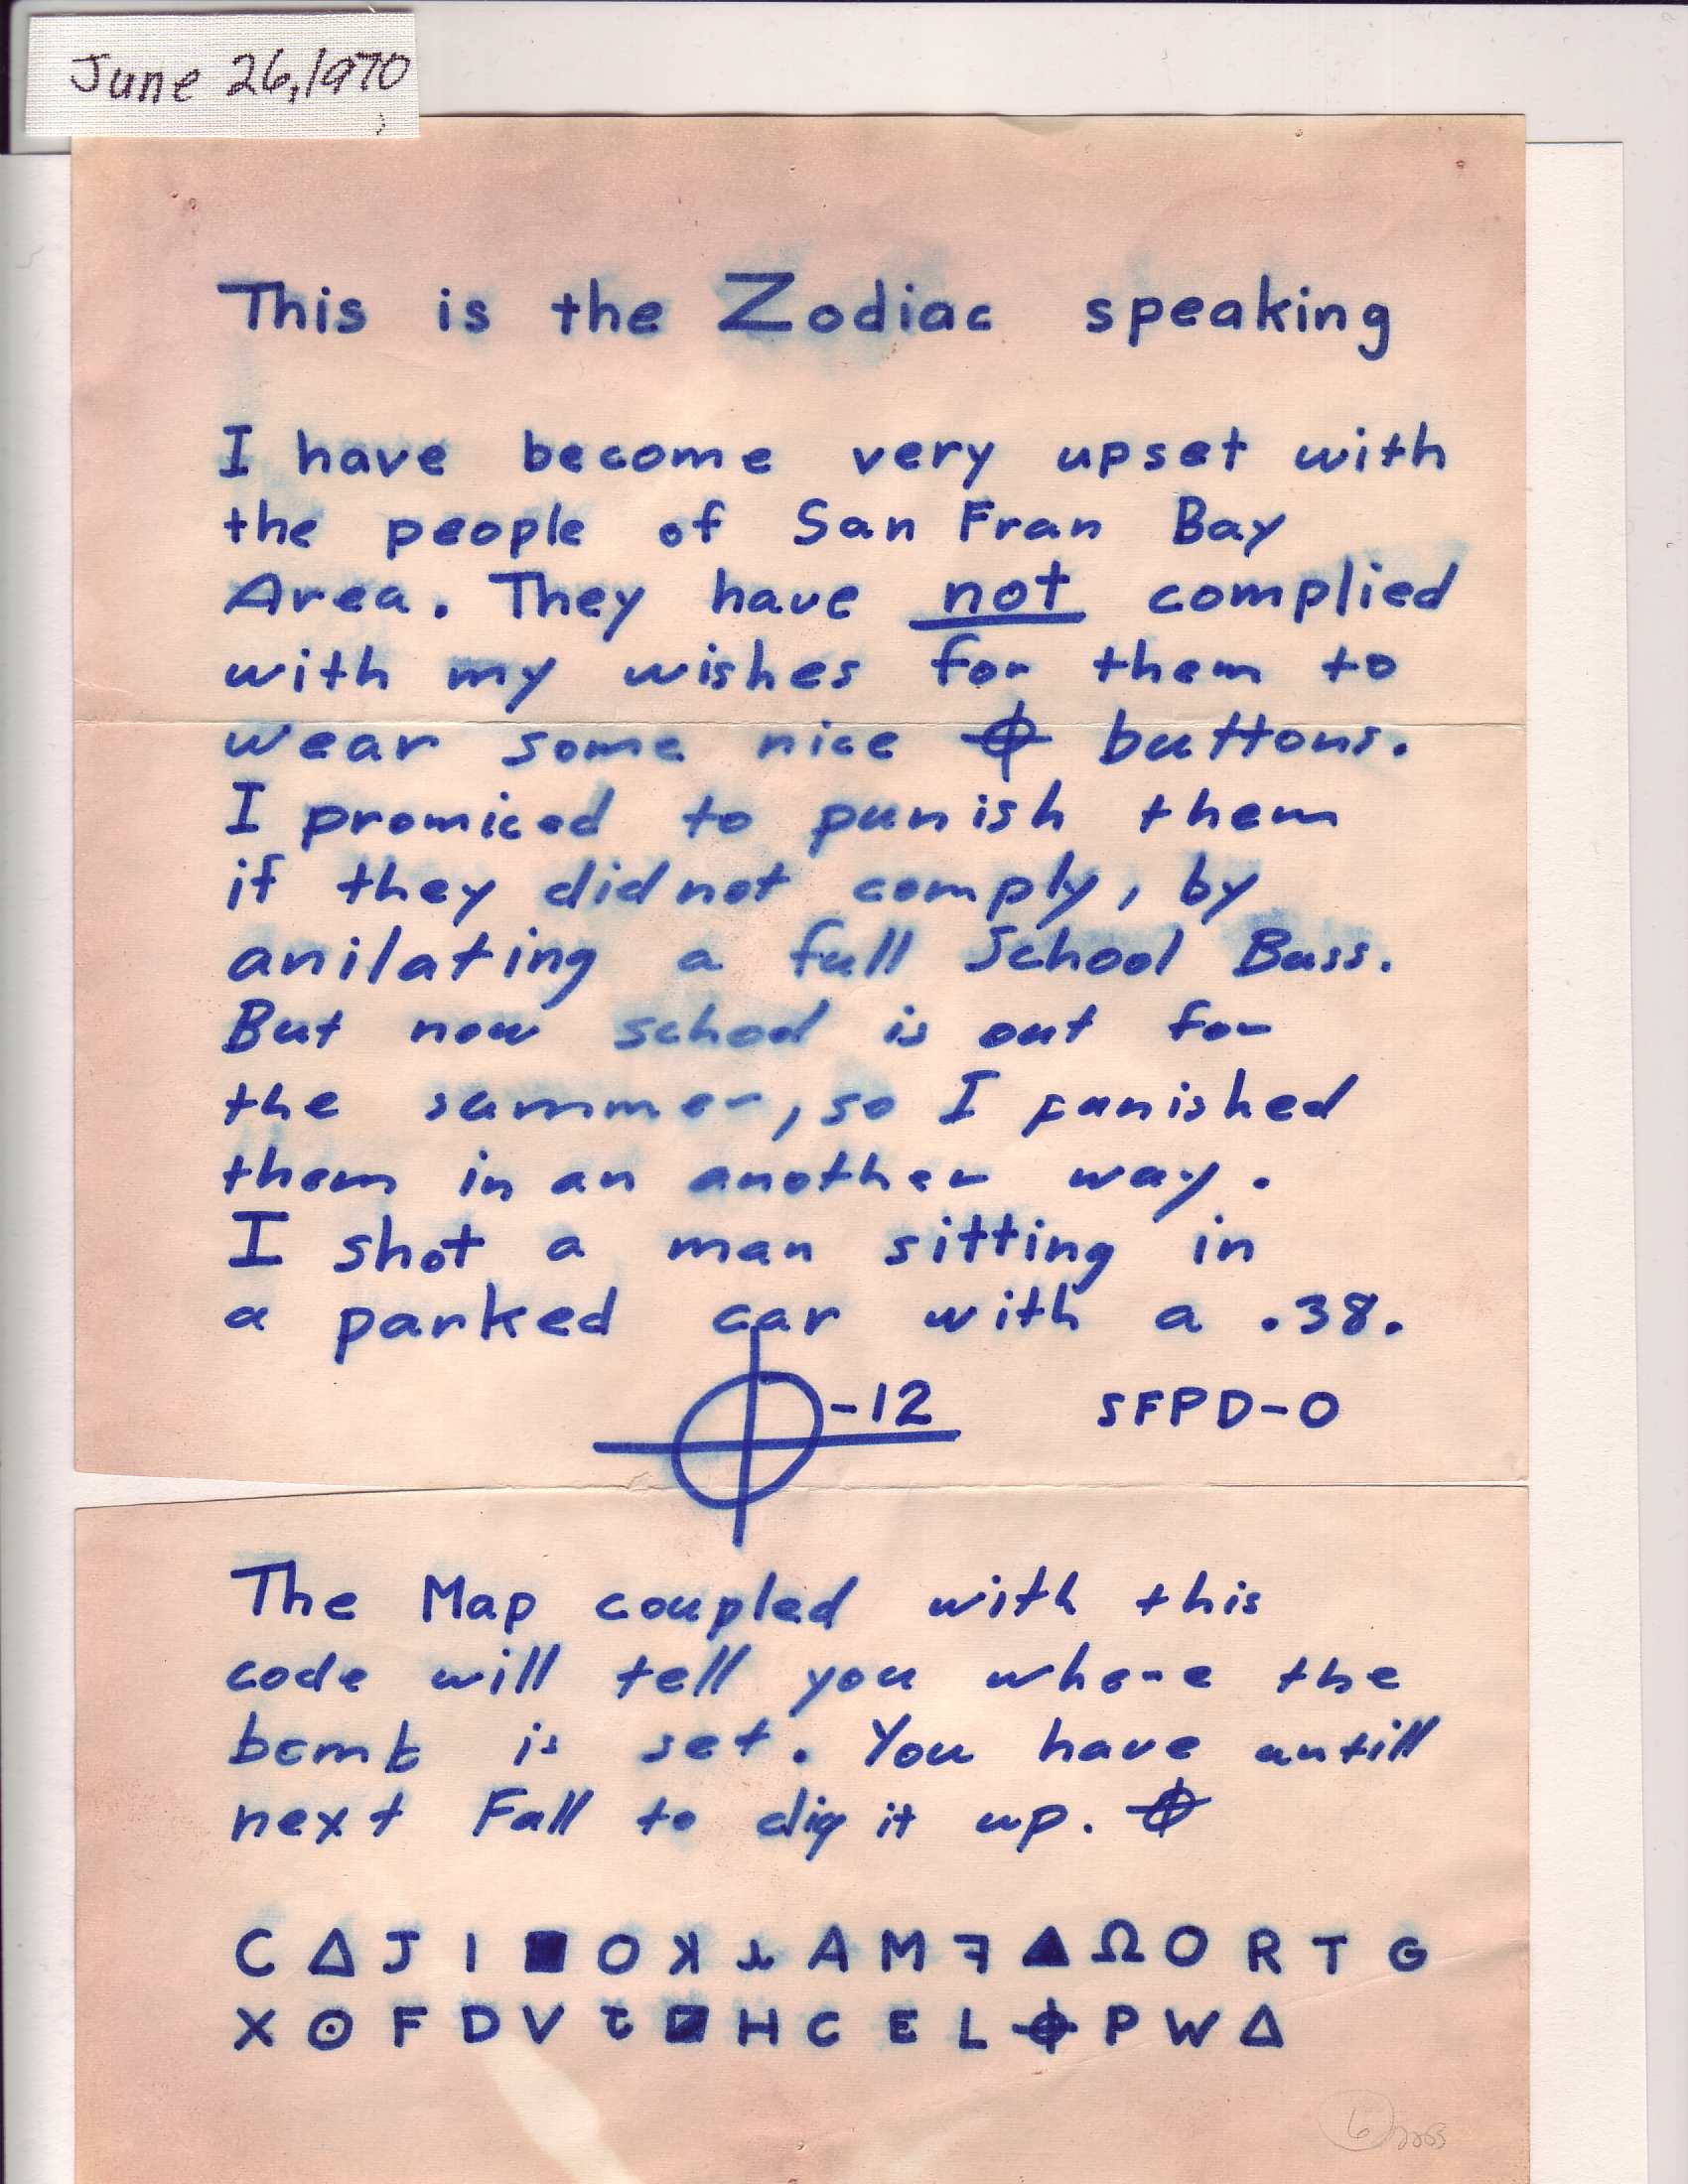 June 26, 1970
This is the Zodiac speaking
I have become very upset with
the people of San Fran Bay
Area. They have not complied
with my wishes for them to
wear some nice ⌖ buttons.
I promiced to punish them
if they did not comply, by
anilating a full School Buss.
But now school is out for
the summer, so I punished
them in an another way.
I shot a man sitting in
a parked car with a .38.
⌖-12 SFPD-0
The Map coupled with this
code will tell you where the
bomb is set. You have untill
next Fall to dig it up. ⌖
C Δ J I ■ O ꓘ ⅄ A M ꟻ ▲ Ω O R T G
X ⊙ F D V Ʇ ◪ H C E L ⌖ P W Δ
6